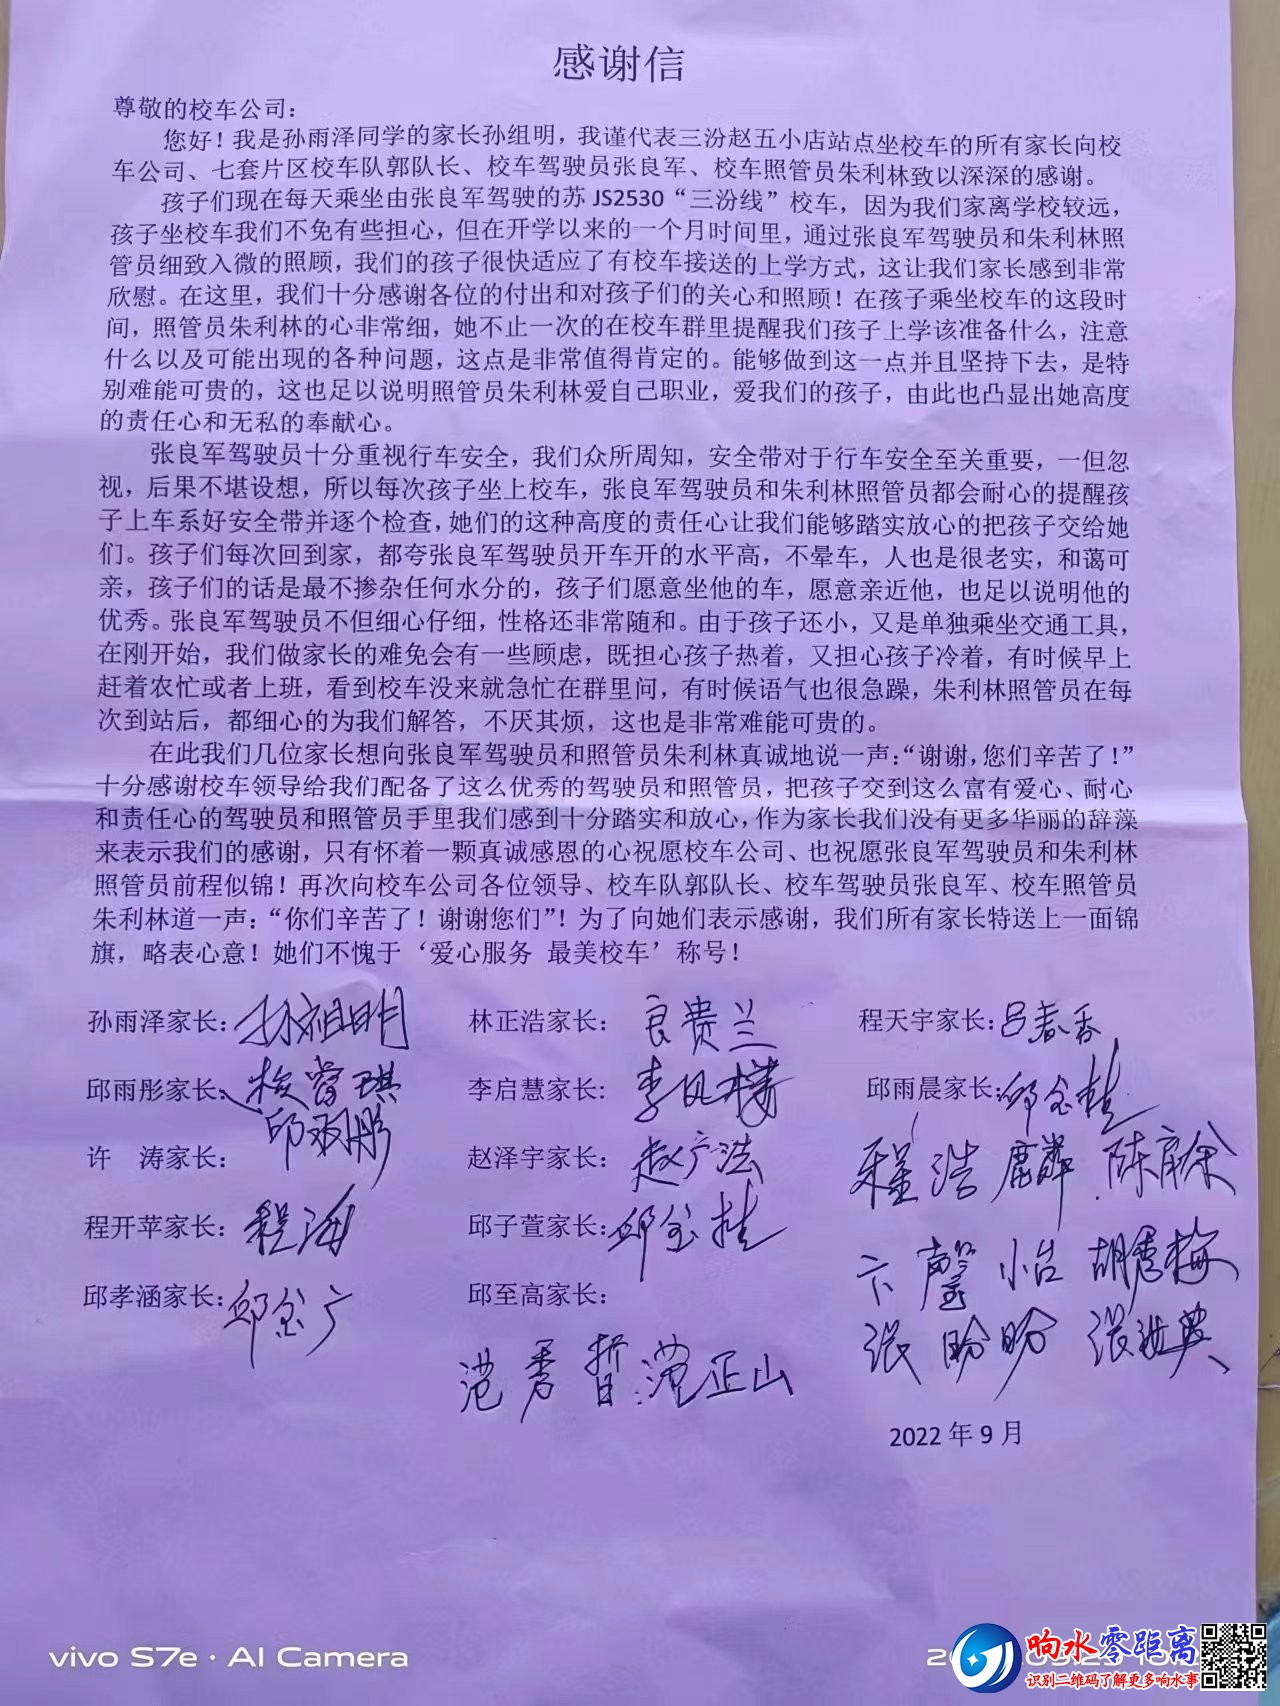 感谢信
尊敬的校车公司：
您好！我是孙雨泽同学的家长孙组明，我谨代表三汾赵五小店站点坐校车的所有家长向校
车公司、七套片区校车队郭队长、校车驾驶员张良军、校车照管员朱利林致以深深的感谢。
孩子们现在每天乘坐由张良军驾驶的苏 JS2530“三汾线”校车，因为我们家离学校较远，
孩子坐校车我们不免有些担心，但在开学以来的一个月时间里，通过张良军驾驶员和朱利林照
管员细致入微的照顾，我们的孩子很快适应了有校车接送的上学方式，这让我们家长感到非常
欣慰。在这里，我们十分感谢各位的付出和对孩子们的关心和照顾！在孩子乘坐校车的这段时
间，照管员朱利林的心非常细，她不止一次的在校车群里提醒我们孩子上学该准备什么，注意
什么以及可能出现的各种问题，这点是非常值得肯定的。能够做到这一点并且坚持下去，是特
别难能可贵的，这也足以说明照管员朱利林爱自己职业，爱我们的孩子，由此也凸显出她高度
的责任心和无私的奉献心。
张良军驾驶员十分重视行车安全，我们众所周知，安全带对于行车安全至关重要，一但忽
视，后果不堪设想，所以每次孩子坐上校车，张良军驾驶员和朱利林照管员都会耐心的提醒孩
子上车系好安全带并逐个检查，她们的这种高度的责任心让我们能够踏实放心的把孩子交给她
们。孩子们每次回到家，都夸张良军驾驶员开车开的水平高，不晕车，人也是很老实，和蔼可
亲，孩子们的话是最不掺杂任何水分的，孩子们愿意坐他的车，愿意亲近他，也足以说明他的
优秀。张良军驾驶员不但细心仔细，性格还非常随和。由于孩子还小，又是单独乘坐交通工具，
在刚开始，我们做家长的难免会有一些顾虑，既担心孩子热着，又担心孩子冷着，有时候早上
赶着农忙或者上班，看到校车没来就急忙在群里问，有时候语气也很急躁，朱利林照管员在每
次到站后，都细心的为我们解答，不厌其烦，这也是非常难能可贵的。
在此我们几位家长想向张良军驾驶员和照管员朱利林真诚地说一声：“谢谢，您们辛苦了！”
十分感谢校车领导给我们配备了这么优秀的驾驶员和照管员，把孩子交到这么富有爱心、耐心
和责任心的驾驶员和照管员手里我们感到十分踏实和放心，作为家长我们没有更多华丽的辞藻
来表示我们的感谢，只有怀着一颗真诚感恩的心祝愿校车公司、也祝愿张良军驾驶员和朱利林
照管员前程似锦！再次向校车公司各位领导、校车队郭队长、校车驾驶员张良军、校车照管员
朱利林道一声：“你们辛苦了！谢谢您们”！为了向她们表示感谢，我们所有家长特送上一面锦
旗，略表心意！她们不愧于‘爱心服务 最美校车’称号！
孙雨泽家长：孙祖明 林正浩家长：良贵兰 程天宇家长：吕春香
邱雨彤家长： 李启慧家长：李凤楼 邱雨晨家长：邱金桂
邱雨彤
许 涛家长： 赵泽宇家长：赵广法 程浩麟 陈
程开苹家长：程海 邱子萱家长：邱金桂
卞馨怡 胡秀梅
邱孝涵家长：邱金广 邱至高家长：
张盼盼 张
范秀哲：范正山
2022 年 9 月
vivo S7e · AI Camera
响水零距离
识别二维码了解更多响水事